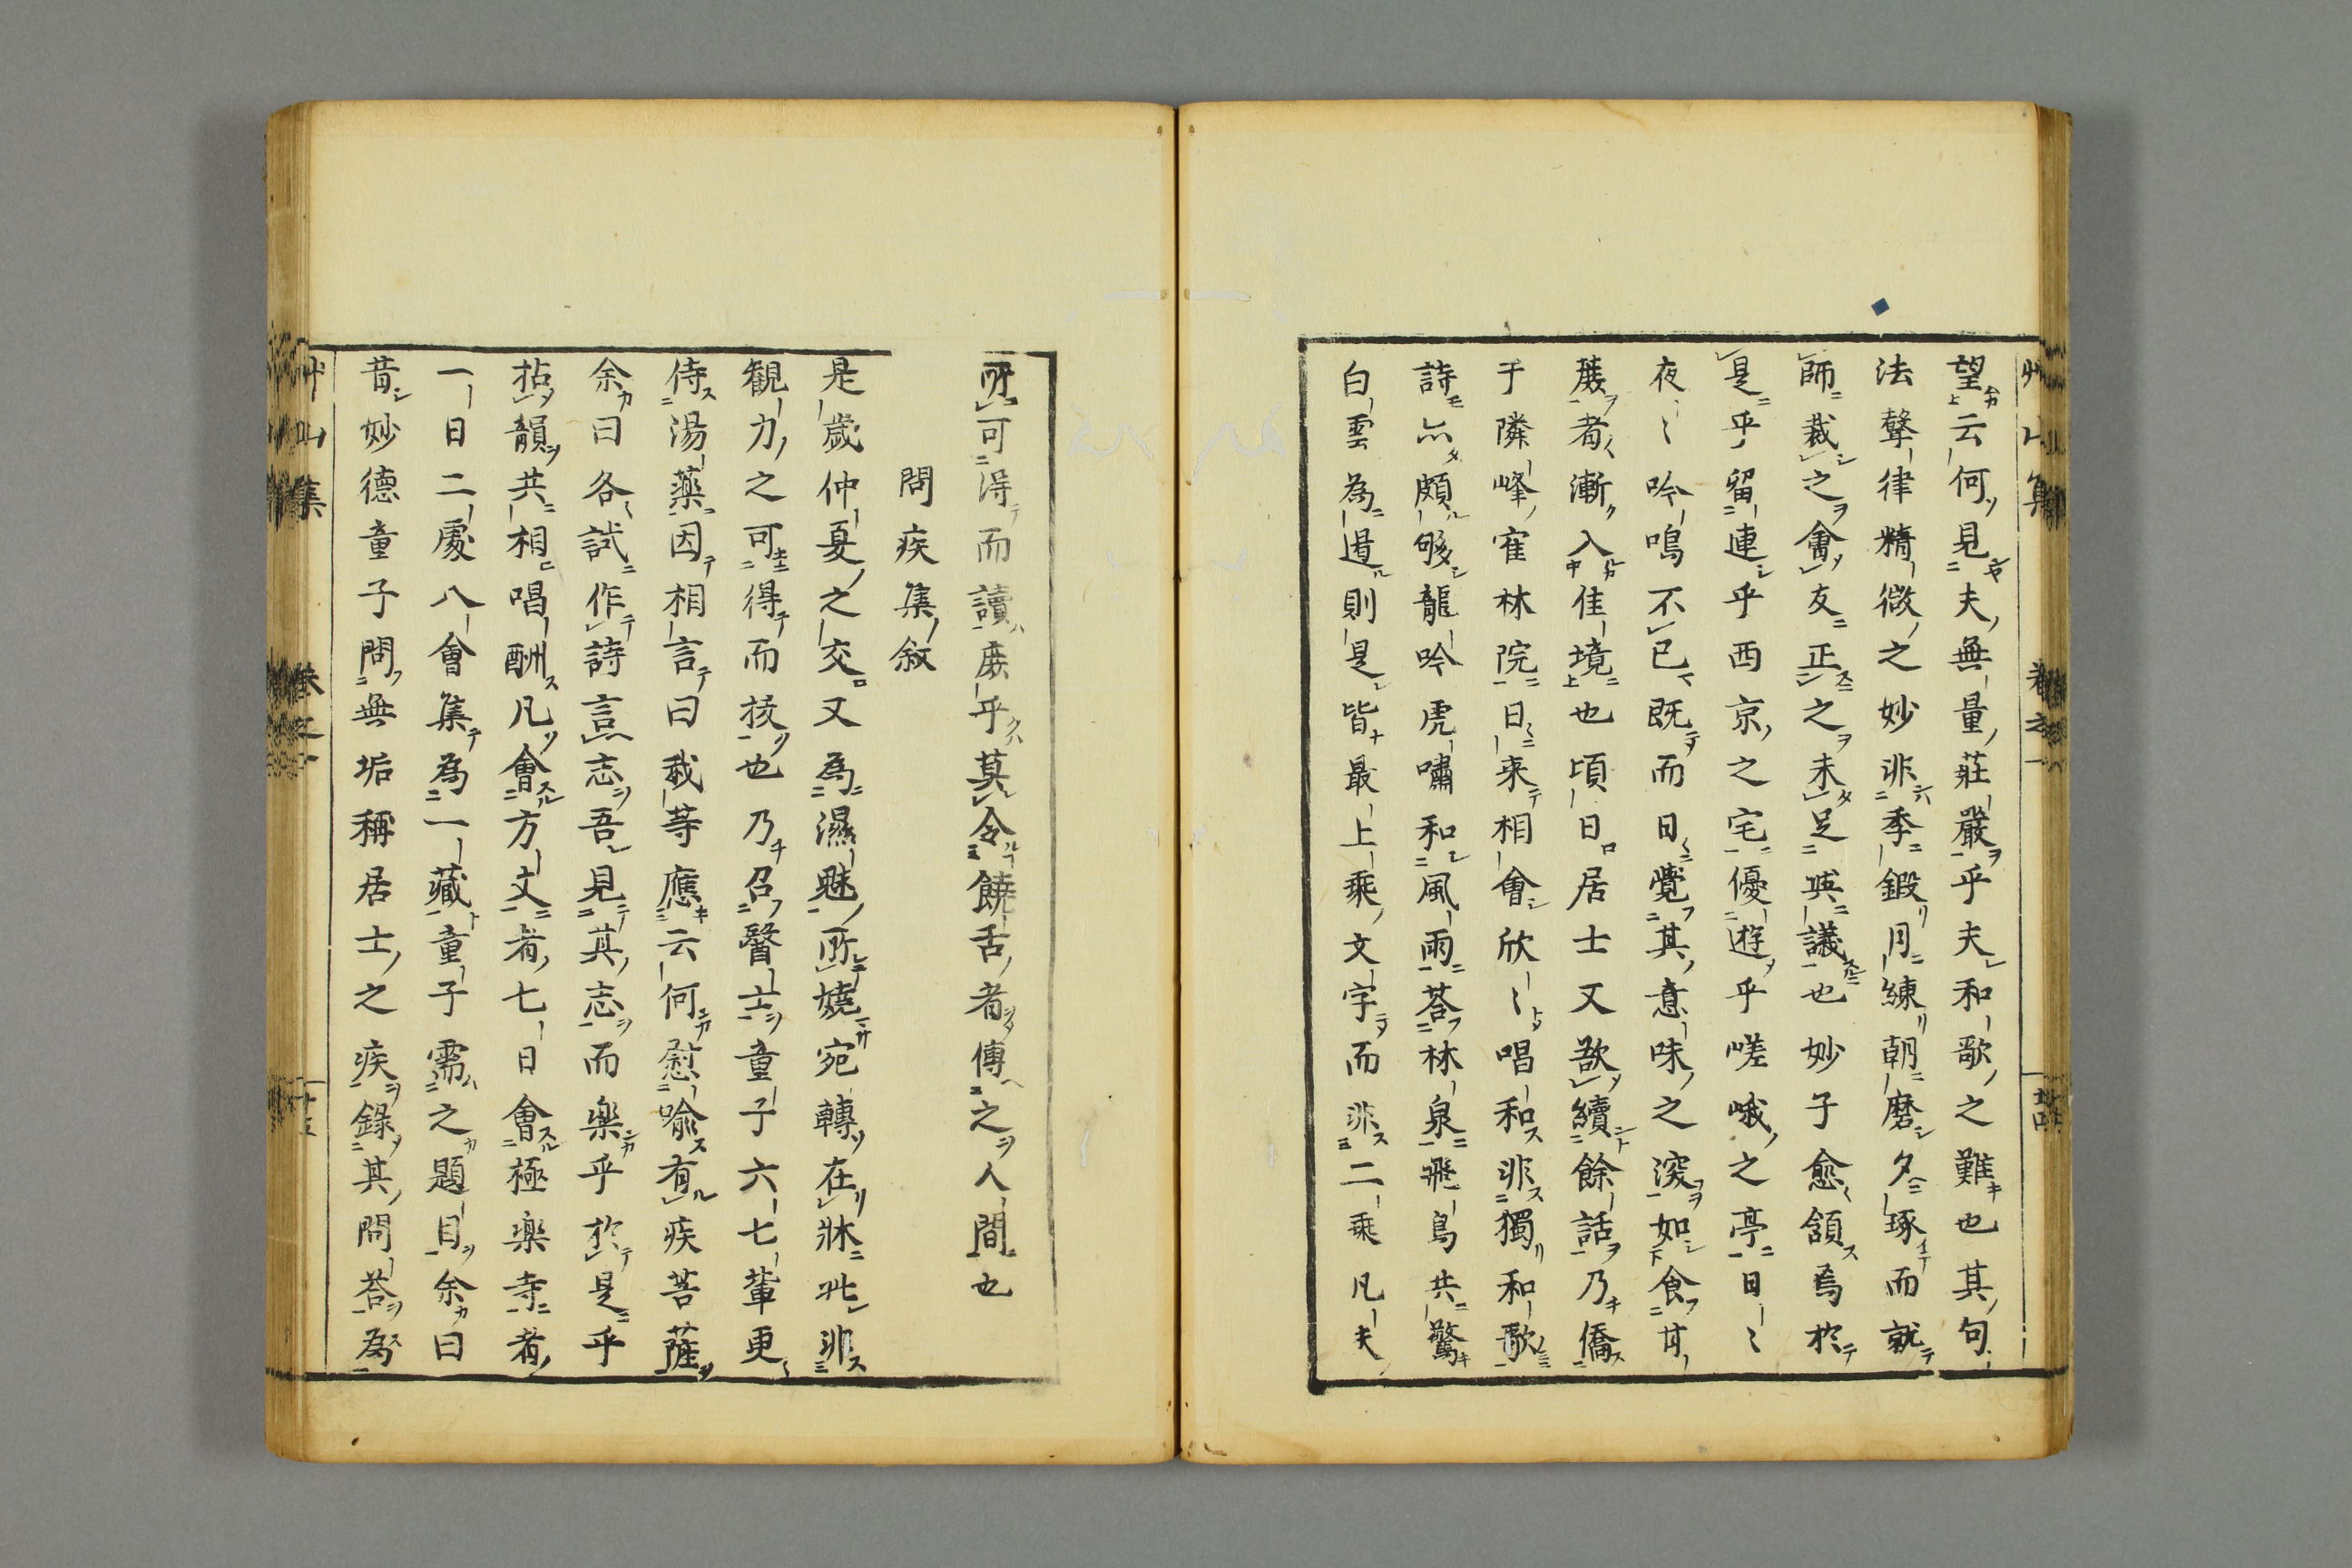 望云何見夫無量莊嚴乎夫和歌之難也其句
法聲律精微之妙非季鍛月練朝磨夕琢而就
師裁之禽友正之未足與議也妙子愈頷焉於
是乎留連乎西京之宅優遊乎嵯峨之亭日〻
夜〻吟鳴不已既而日覺其意味之深如食甘
蔗者漸入佳境也頃日居士又欲續餘話乃僑
于隣峰寉林院日来相會欣〻唱和非獨和歌
詩亦頗够龍吟虎嘯和風雨荅林泉飛鳥共驚
白雲為遏則是皆最上乘文字而非二乘凡夫
所可得而讀蔗乎莫令饒舌者傳之人間也
問疾集叙
是歳仲夏之交又為濕魅所嬈宛轉在牀此非
観力之可得而核也乃召醫士童子六七輩更
侍湯藥因相言曰我等應云何慰喻有疾菩薩
余曰各試作詩言志吾見其志而楽乎於是乎
拈韻共相唱酬凡會方丈者七日會極楽寺者
一日二處八會集為一藏童子需之題目余曰
昔妙德童子問無垢稱居士之疾錄其問荅為
艸山集 卷之一 十五